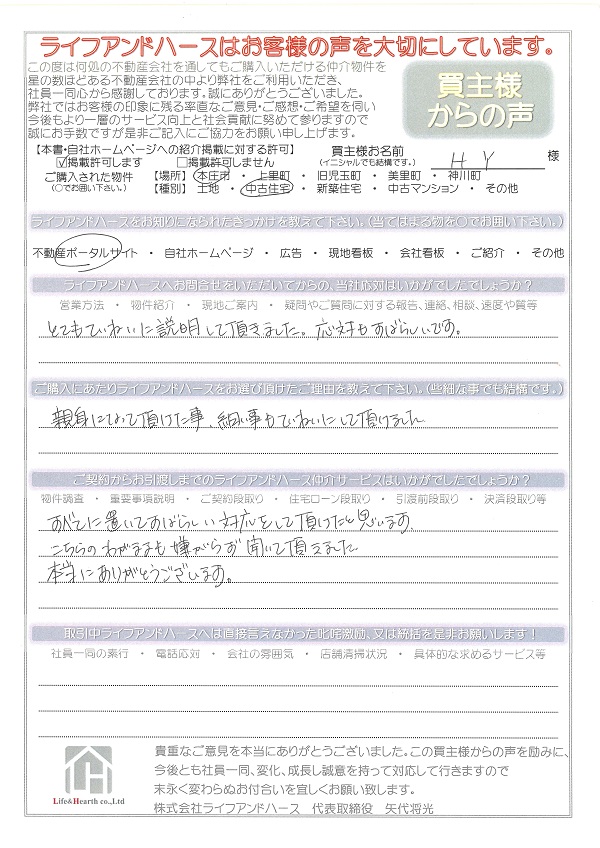 ライフアンドハースはお客様の声を大切にしています。
この度は何処の不動産会社を通してもご購入いただける仲介物件を
星の数ほどある不動産会社の中より弊社をご利用いただき、
社員一同心から感謝しております。誠にありがとうございました。
弊社ではお客様の印象に残る率直なご意見・ご感想・ご希望を伺い
今後もより一層のサービス向上と社会貢献に努めて参りますので
誠にお手数ですが是非ご記入にご協力をお願い申し上げます。
買主様
からの声
【本書・自社ホームページへの紹介掲載に対する許可】
☑掲載許可します □掲載許可しません
買主様お名前
(イニシャルでも結構です。)
H Y 様
ご購入された物件 【場所】 本庄市 ・ 上里町 ・ 旧児玉町 ・ 美里町 ・ 神川町
(○でお囲い下さい。) 【種別】 土地 ・ 中古住宅 ・ 新築住宅 ・ 中古マンション ・ その他
ライフアンドハースをお知りになられたきっかけを教えて下さい。(当てはまる物を○でお囲い下さい。)
不動産ポータルサイト ・ 自社ホームページ ・ 広告 ・ 現地看板 ・ 会社看板 ・ ご紹介 ・ その他
ライフアンドハースへお問合せをいただいてからの、当社応対はいかがでしたでしょうか?
営業方法 ・ 物件紹介 ・ 現地ご案内 ・ 疑問やご質問に対する報告、連絡、相談、速度や質等
とてもていねいに説明して頂きました。応対もすばらしいです。
ご購入にあたりライフアンドハースをお選び頂けたご理由を教えて下さい。(些細な事でも結構です。)
親身になって頂けた事、細い事もていねいにして頂けました
ご契約からお引渡しまでのライフアンドハース仲介サービスはいかがでしたでしょうか?
物件調査 ・ 重要事項説明 ・ ご契約段取り ・ 住宅ローン段取り ・ 引渡前段取り ・ 決済段取り等
すべてに置いてすばらしい対応をして頂けたと思います
こちらのわがままも嫌がらず聞いて頂えました
本当にありがとうございます。
取引中ライフアンドハースへは直接言えなかった叱咤激励、又は統括を是非お願いします!
社員一同の素行 ・ 電話応対 ・ 会社の雰囲気 ・ 店舗清掃状況 ・ 具体的な求めるサービス等
貴重なご意見を本当にありがとうございました。この買主様からの声を励みに、
今後とも社員一同、変化、成長し誠意を持って対応して行きますので
末永く変わらぬお付合いを宜しくお願い致します。
Life&Hearth co.,Ltd
株式会社ライフアンドハース 代表取締役 矢代将光